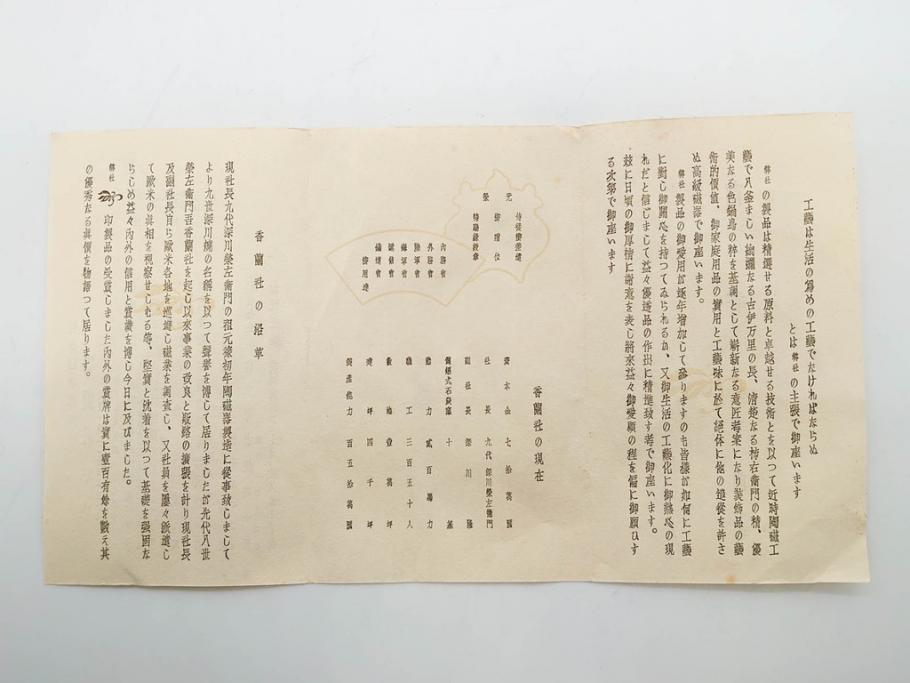 工藝は生活の爲めの工藝でなければならぬ
とは弊社の主張で御座います
弊社の製品は精選せる原料と卓越せる技術とを以つて近時陶磁工
藝で八釜ましい絢爛たる古伊万里の長、清楚なる柿右衛門の精、優
美なる色鍋島の粹を基調として嶄新なる意匠考案になり裝飾品の藝
術的價値、御家庭用品の實用と工藝味に於て絕体に他の追從を許さ
ぬ高級磁器で御座います。
弊社製品の御愛用が逐年增加して參りますのも皆樣が如何に工藝
に對し御關心を持つてゐられるか、又御生活の工藝化に御熱心の現
れだと信じまして益々優逸品の作出に精進致す考で御座います。
茲に日頃の御厚情に謝意を表し將來益々御愛顧の程を偏に御願ひす
る次第で御座います
元
榮
特務艦
內務省
外務省
陸軍省
海軍省
遞信省
鐵道省
御用達
香蘭社の現在
資本金 七拾萬圓
社長 九代深川榮左衛門
副社長 深川隆
十基
動力 貳百馬力
職工 三百五十人
敷地 壹萬坪
建坪 四千坪
製產能力 百五拾萬圓
香蘭社の沿革
現社長九代深川榮左衛門の祖元祿初年陶磁器製造に從事致しまして
より九世深川燒の名稱を以つて聲譽を博して居りましたが先代八世
榮左衛門吾香蘭社を起し以來事業の改良と販路の擴張を計り現社長
及副社長自ら歐米各地を巡遊し磁業を調査し、又社員を屢々派遣し
て歐米の眞相を視察せしむる等、堅實と沈着を以つて基礎を强固な
らしめ益々內外の信用と賞讚を博し今日に及びました。
弊社印製品の受賞しました內外の賞牌は實に壹百有餘を數え其
の優秀なる眞價を物語つて居ります。